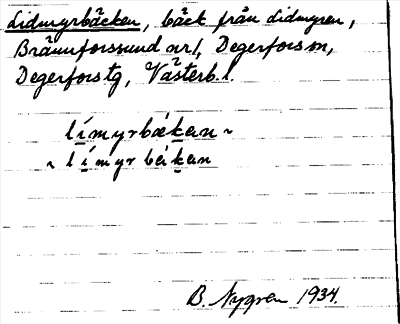 Lidmyrbäcken, bäck från Lidmyren,
Brännforssund nr 1, Degerfors sn,
Degerfors tg, Västerb. l.
límyrbæ̀kan ~
~ límyr bèkan
B. Nygren 1934.